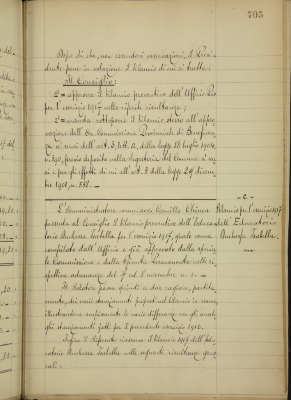 795
Dopo di che, non essendovi osservazioni, il Presi-
dente pone in votazione il bilancio di cui si tratta.
Il Consiglio
1° = approva il bilancio preventivo dell'Ufficio
per l'esercizio 1917 nelle esposte risultanze;
2° = manda sottoporre il bilancio stesso all'appro-
vazione dell'On. Commissione Provinciale di Beneficen-
za ai sensi dell'art. 3, lett. a, della legge 18 luglio 1904,
n. 390, previo deposito nella Segreteria del Comune ai sen-
si e per gli effetti di cui all'art. 3 della legge 29 dicem-
bre 1901, n. 552. -
- C -
Bilancio per l'esercizio 1917
dell'Educatorio
Duchessa Isabella.
L'Amministratore comunale Camillo Chiesa
presenta al Consiglio il bilancio preventivo dell'Educa-
torio Duchessa Isabella per l'esercizio 1917, quale venne
compilato dall'Ufficio e già approvato dalla speciale
Commissione e dalla Giunta Permanente nelle ri-
spettive adunanze del 7 ed 8 novembre
Il Relatore passa quindi a dar ragione, partita-
mente, dei varii stanziamenti proposti nel bilancio in esame,
illustrandone ampiamente le varie differenze con gli analo-
ghi stanziamenti fatti per il precedente esercizio 1916.
Infine il Riferente riassume il bilancio 1917 dell'Edu-
catorio Duchessa Isabella nelle seguenti risultanze gene-
rali: